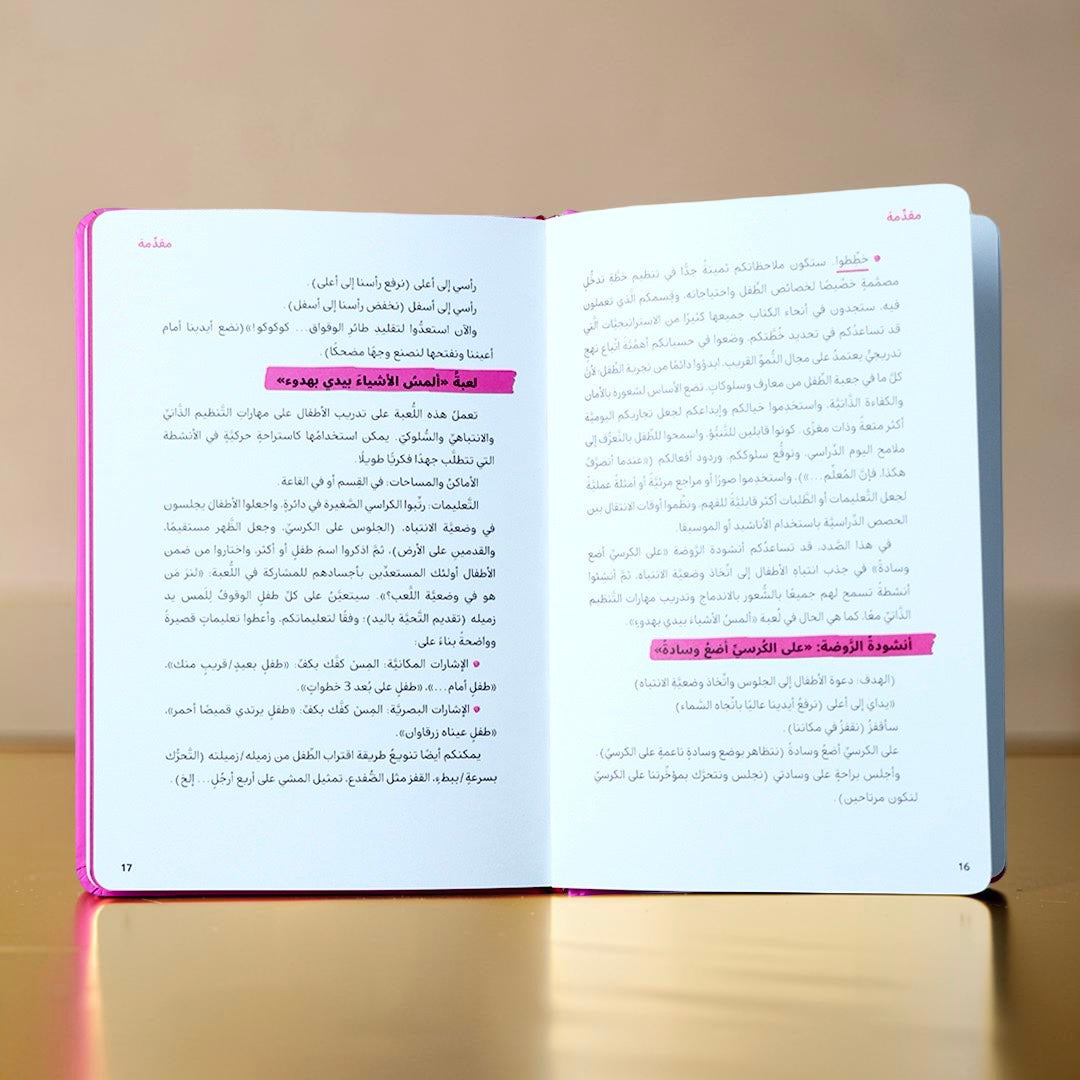 مقدّمة
• خطِّطوا. ستكون ملاحظاتكم ثمينةً جدًّا في تنظيم خطَّة تدخُّل
مصمَّمةٍ خصّيصًا لخصائص الطِّفل واحتياجاته، وقسمكم الَّذي تعملون
فيه. ستجدون في أنحاء الكتاب جميعها كثيرًا من الاستراتيجيَّات الَّتي
قد تساعدُكم في تحديد خُطَّتكم. وضعوا في حسبانكم أهمّيَّة اتِّباع نهجٍ
تدريجيٍّ يعتمدُ على مجال النُّموِّ القريب. ابدؤوا دائمًا من تجربة الطِّفل؛ لأنَّ
كلَّ ما في جعبة الطِّفل من معارف وسلوكاتٍ، تضع الأساس لشعوره بالأمان
والكفاءة الذَّاتيَّة. واستخدموا خيالكم وإبداعكم لجعل تجاربكم اليوميَّة
أكثر متعةً وذات مغزًى. كونوا قابلين للتَّنبُّؤ، واسمحوا للطِّفل بالتَّعرُّف إلى
ملامح اليوم الدِّراسي، وتوقُّع سلوككم، وردود أفعالكم («عندما أتصرَّفُ
هكذا، فإنَّ المُعلِّم...»). واستخدِموا صورًا أو مراجع مرئيَّة أو أمثلةً عمليَّةً
لجعل التَّعليمات أو الطَّلبات أكثر قابليَّةً للفهم. ونظِّموا أوقات الانتقال بين
الحصص الدِّراسيَّة باستخدام الأناشيد أو الموسيقا.
في هذا الصَّدد، قد تساعدُكم أنشودة الرَّوضة «على الكرسيِّ أضع
وسادةً» في جذب انتباه الأطفال إلى اتِّخاذ وضعيَّة الانتباه. ثمَّ أنشئوا
أنشطةً تسمح لهم جميعًا بالشُّعور بالاندماج وتدريب مهارات التَّنظيم
الذَّاتيِّ معًا، كما هي الحال في لُعبة «ألمسُ الأشياءَ بيدي بهدوءٍ».
أنشودةُ الرَّوضة: «على الكُرسيِّ أضعُ وسادةً»
(الهدف: دعوة الأطفال إلى الجلوس واتِّخاذ وضعيَّةِ الانتباه)
«يدايَ إلى أعلى (نرفعُ أيدينا عاليًا باتِّجاه السَّماء)
سأقفزُ (نقفزُ في مكاننا).
على الكرسيِّ أضعُ وسادةً (نتظاهر بوضع وسادةٍ ناعمةٍ على الكرسيّ).
وأجلس براحةٍ على وسادتي (نجلس ونتحرَّك بمؤخّرتنا على الكرسيّ
لنكون مرتاحين).
16
مقدّمة
رأسي إلى أعلى (نرفع رأسنا إلى أعلى).
رأسي إلى أسفل (نخفض رأسنا إلى أسفل).
والآن استعدُّوا لتقليدِ طائرِ الوقواق... كوكوكو!»(نضع أيدينا أمام
أعيننا ونفتحها لنصنع وجهًا مضحكًا).
لعبةُ «ألمسُ الأشياءَ بيدي بهدوء»
تعملُ هذه اللُّعبة على تدريب الأطفال على مهارات التَّنظيم الذَّاتيّ
والانتباهيّ والسُّلوكيّ. يمكن استخدامُها كاستراحةٍ حركيَّةٍ في الأنشطة
التي تتطلَّب جهدًا فكريًّا طويلًا.
الأماكنُ والمساحات: في القِسم أو في القاعة.
التَّعليمات: رتِّبوا الكراسي الصَّغيرة في دائرةٍ، واجعلوا الأطفال يجلسون
في وضعيَّة الانتباه، (الجلوس على الكرسيّ، وجعل الظَّهر مستقيمًا،
والقدمين على الأرض)، ثمَّ اذكروا اسمَ طفلٍ أو أكثر، واختاروا من ضمن
الأطفال أولئك المستعدِّين بأجسادهم للمشاركة في اللُّعبة: «لنرَ مَن
هو في وضعيَّة اللَّعب؟». سيتعيَّنُ على كلِّ طفلٍ الوقوفُ لِلَمس يد
زميله (تقديم التَّحيَّة باليد)؛ وفقًا لتعليماتكم. وأعطوا تعليماتٍ قصيرةً
وواضحةً بناءً على:
• الإشارات المكانيَّة: المِسن كفَّك بكفّ: «طفلٍ بعيدٍ/قريبٍ منك»،
«طفلٍ أمام...»، «طفلٍ على بُعد 3 خطواتٍ».
• الإشارات البصريَّة: المِسن كفَّك بكفّ: «طفلٍ يرتدي قميصًا أحمر»،
«طفلٍ عيناه زرقاوان».
يمكنكم أيضًا تنويعُ طريقة اقتراب الطِّفل من زميله/زميلته (التَّحرُّك
بسرعةٍ/ببطءٍ، القفز مثل الضُّفدع، تمثيل المشي على أربع أرجُلٍ... إلخ).
17